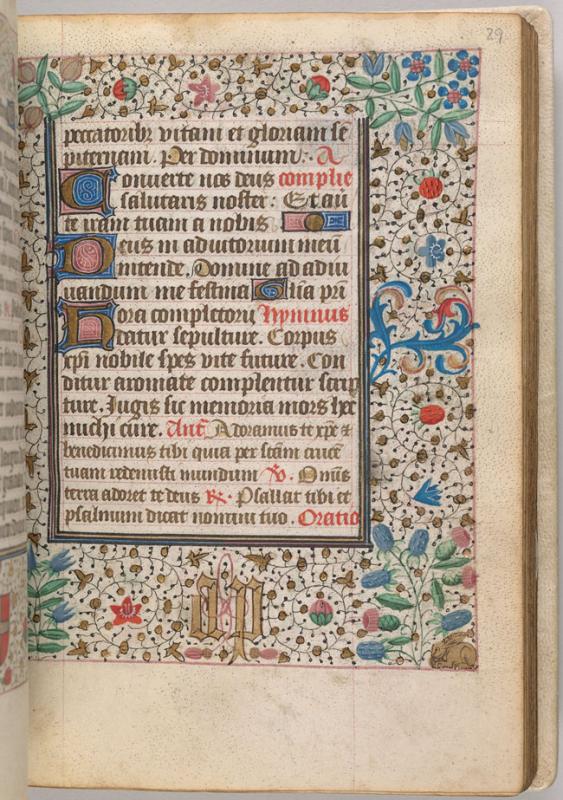 29
peccatoribꝫ vitam et gloriam se
piternam. Per dominum. A
Converte nos deus complie
salutaris noster: Et au
te iram tuam a nobis
Deus in adiutorium meū
intende. Domine ad adiu
uandum me festina Glia pr̄i
Hora completorij Hymnus
datur sepulture. Corpus
xp̄i nobile spes vite future. Con
ditur aromate complentur scrip
ture. Iugis sic memoria mors hec
michi cure. Ant̄ Adoramus te xp̄e &
benedicimus tibi quia per sc̄am crucē
tuam redemisti mundum ℣. Omīs
terra adoret te deus ℟. Psallat tibi et
psalmum dicat nomini tuo. Oratio